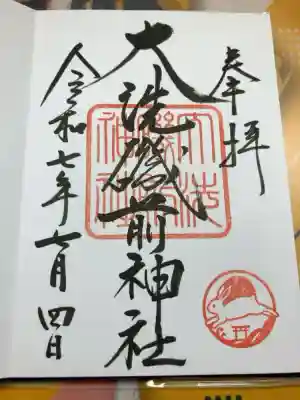 奉拝
大洗磯前神社
令和七年六月四日